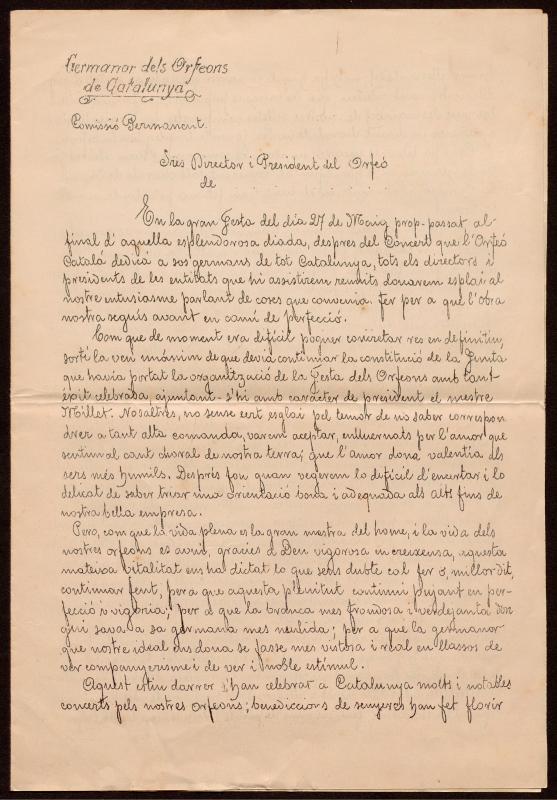 Germanor dels Orfeons
de Catalunya
Comissió Permanent.
Srés Director i President del Orfeó
de . . . . . . . . .
En la gran Festa del dia 27 de Maig prop-passat al
final d'aquella esplendorosa diada, despres del Concert que l'Orfeó
Catalá dedicá a sos germans de tot Catalunya, tots els directors i
presidents de les entitats que hi assistirem reunits donarem esplai al
nostre entusiasme parlant de coses que convenia fer per a que l'obra
nostra seguís avant en camí de perfecció.
Com que de moment era difícil poguer concretar res en definitiu,
sortí la veu unánim de que devia continuar la constitució de la Junta
que havia portat la organització de la Festa dels Orfeons amb tant
èxit celebrada, ajuntant-s'hi amb carácter de president el mestre
Millet. Nosaltres, no sense cert esglai pel temor de no saber correspon
drer a tant alta comanda, varem aceptar, enlluernats per l'amor que
sentim al cant choral de nostra terra; que l'amor dona valentia als
sers més humils. Després fou quan vegerem lo dificil d'encertar i lo
delicat de saber triar una orientació bona i adequada als alts fins de
nostra bella empresa.
Però, com que la vida plena es la gran mestra del home, i la vida dels
nostres orfeons es avui, gracies a Deu vigorosa i creixensa, aquesta
mateixa vitalitat ens ha dictat lo que sens dubte cal fer ó, millor dit,
continuar fent, per a que aquesta plenitut continui pujant en per-
fecció i vigoria; per a que la branca mes frondosa i verdejanta don
gui sava a sa germana mes neulida; per a que la germanor
que nostre ideal ens dona se fasse mes vistosa i real en llassos de
ver companyerisme i de ver i noble estímul.
Aquest estiu darrer s'han celebrat a Catalunya molts i notables
concerts pels nostres orfeons; benediccions de senyeres han fet florir